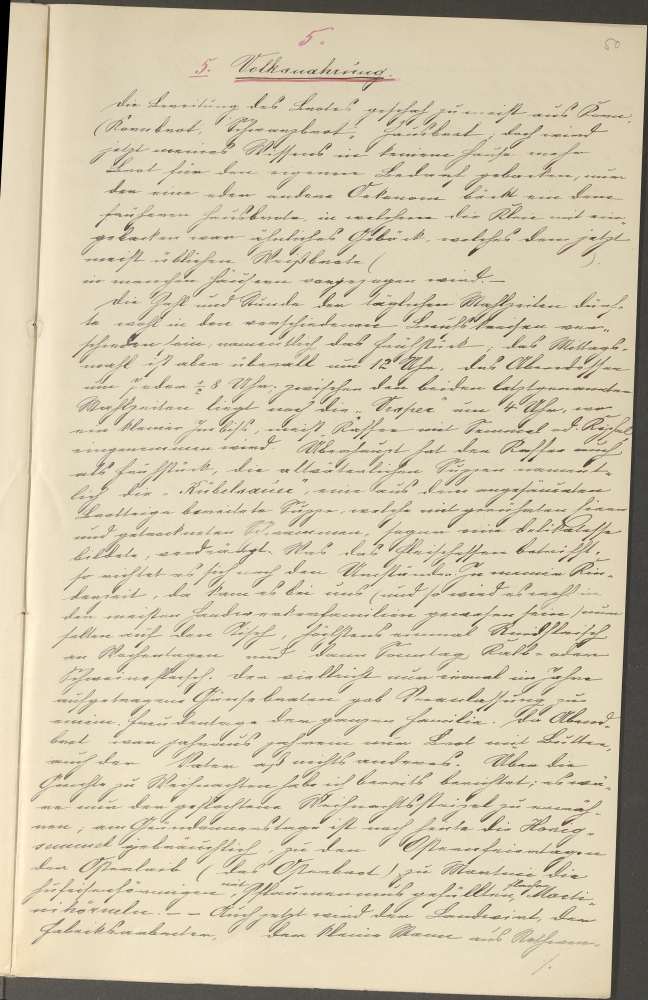 5.
50
5. Volksnahrung.
Die Bereitung des Brotes geschah zumeist aus Korn.
(Kornbrot, Schwarzbrot, Hausbrot; doch wird
jetzt meines Wissens in keinem Hause mehr
Brot für den eigenen Bedarf gebacken, nur
der eine oder andere Oekonom bäckt ein dem
früheren Hausbrote, in welchem die Kleie mit ein-
gebacken war ähnliches Gebäck, welches dem jetzt
meist üblichen Weißbrote ( ).
in manchen Häusern vorgezogen wird. –
Die Zahl und Stunde der täglichen Mahlzeiten dürf-
te wohl in den verschiedenen Berufskreisen ver-
schieden sein, namentlich das Frühstück; das Mittags-
mahl ist aber überall um 12 Uhr, das Abendessen
um 7 oder ½ 8 Uhr; zwischen den beiden letztgenannten
Mahlzeiten liegt noch die „Vesper" um 4 Uhr, wo
ein kleiner Imbiß, meist Kaffee mit Semmel od.
eingenommen wird. Überhaupt hat der Kaffee auch
als Frühstück, die altväterlichen Suppen nament-
lich die „ ", eine aus dem angesäuerten
Brotteige bereitete Suppe, welche mit
und getrockneten Schwammen, sogar eine Delikatesse
bildete, verdrängt. Was das Fleischessen betrifft,
so richtet es sich nach den Umständen. In meiner Kin-
derzeit, da kam es bei uns (und so wird es wohl in
den meisten Handwerkerfamilien gewesen sein) nur
selten auf den Tisch, höchstens einmal Rindfleisch
an Wochentagen und dann Sonntag Kalb- oder
Schweinefleisch. Der vielleicht nur einmal im Jahre
aufgetragene Gänsebraten gab Veranlassung zu
einem Freudentage der ganzen Familie. Das Abend-
brot war jahraus jahrein nur Brot mit Butter,
auch der Vater aß nichts anderes. Über die
Gerichte zu Weihnachten habe ich bereits berichtet; es wä-
re nun der geflochtene Weihnachtsstriezel zu erwäh-
nen; am Gründonnerstage ist noch heute die Honig-
semmel gebräuchlich, zu den Osterfeiertagen
der Osterlaib (das Osterbrot) zu Martini die
hufeisenförmigen mit Pflaumenmus gefüllten Marti-
nihörneln. – – Auch jetzt wird der Landwirt, der
Fabriksarbeiter, der kleine Mann aus
./.